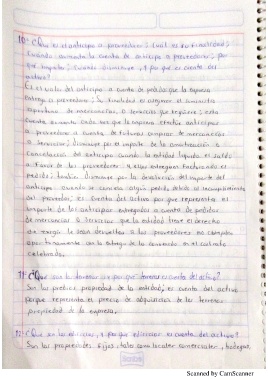 10- ¿Que es el anticipo a proveedores; cual es su finalidad;
Cuando aumenta la cuenta de anticipo a proveedores; por
que importe; Cuando disminuye, y por que es cuenta del
activo?
Es el valor del anticipo a cuenta de pedido que la empresa
entrega a proveedores; la finalidad es asegurar el suministro
de mercancias o servicios que requiere; esta
cuenta aumenta cada vez que la empresa efectua anticipos
a proveedores a cuenta de futuras compras de mercancias
o Servicios; disminuye por el importe de la amortización o
Cancelación del anticipo cuando la entidad liquida el saldo
a favor de los proveedores y estos entregan facturado el
pedido; tambien disminuye por la devolución del importe del
anticipo cuando se cancela algun pedido debido al incumplimiento
del proveedor, es cuenta del activo por que representa el
importe de los anticipos entregados a cuenta de pedidos
de mercancias o Servicios que la entidad tiene el derecho
de exigir le sean devueltos si los proveedores no cumplen
oportunamente con la entrega de lo convenido en el contrato
celebrado.
11- ¿Que son los terrenos y por que terrenos es cuenta del activo?
Son los predios propiedad de la entidad, es cuenta del activo
porque representa el precio de adquisición de los terrenos
propiedad de la empresa.
12- ¿Que son los edificios, y por que edificios es cuenta del activo?
Son las propiedades fijas, tales como locales comerciales, bodegas,
Scanned by CamScanner